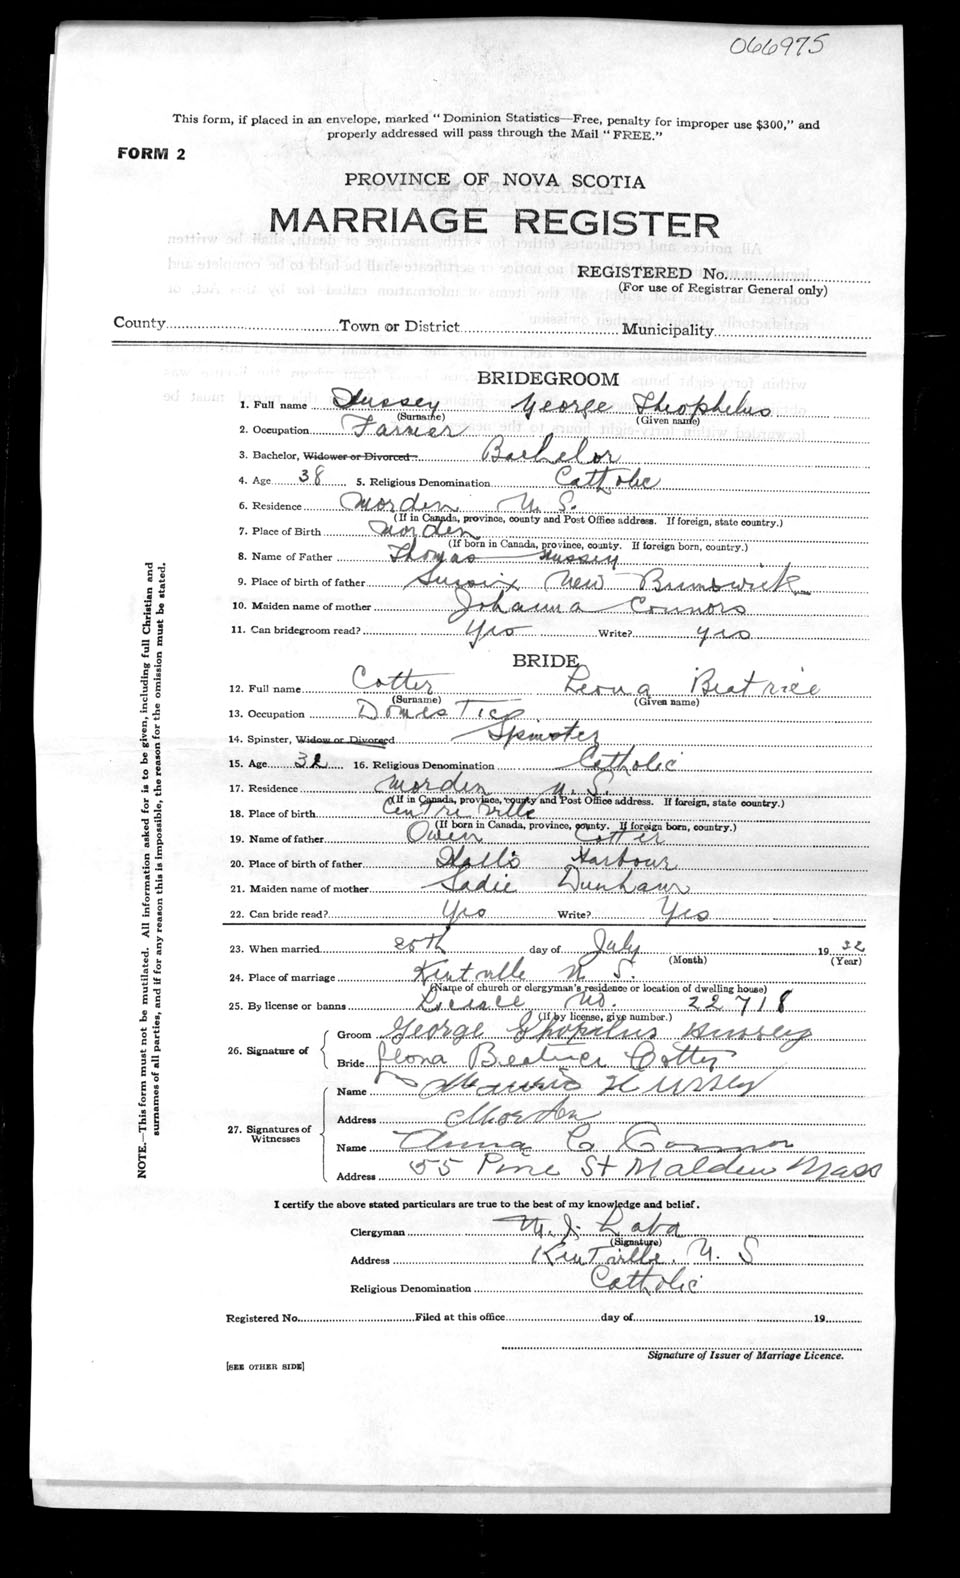 066975
This form, if placed in an envelope, marked "Dominion Statistics—Free, penalty for improper use $300," and
properly addressed will pass through the Mail "FREE."
FORM 2
PROVINCE OF NOVA SCOTIA
MARRIAGE REGISTER
REGISTERED No.
(For use of Registrar General only)
County Town or District Municipality
BRIDEGROOM
1. Full name Hussey George Theophelus
(Surname) (Given name)
2. Occupation Farmer
3. Bachelor, Widower or Divorced Bachelor
4. Age 38 5. Religious Denomination Catholic
6. Residence Morden N. S.
(If in Canada, province, county and Post Office address. If foreign, state country.)
7. Place of Birth Morden
(If born in Canada, province, county. If foreign born, country.)
8. Name of Father Thomas Hussey
9. Place of birth of father Sussix New Brunswick
10. Maiden name of mother Johanna Connors
11. Can bridegroom read? Yes Write? yes
BRIDE
12. Full name Cotter Leona Beatrice
(Surname) (Given name)
13. Occupation Domestic
14. Spinster, Widow or Divorced Spinster
15. Age 32 16. Religious Denomination Catholic
17. Residence Morden N. S.
(If in Canada, province, county and Post Office address. If foreign, state country.)
18. Place of birth Centreville
(If born in Canada, province, county. If foreign born, country.)
19. Name of father Owen Cotter
20. Place of birth of father Halls Harbour
21. Maiden name of mother Sadie Dunham
22. Can bride read? Yes Write? Yes
23. When married 20th day of July 19 32
(Month) (Year)
24. Place of marriage Kentville N. S.
(Name of church or clergyman's residence or location of dwelling house)
25. By license or banns No. 22718
(If by license, give number.)
Groom George Hussey
26. Signature of
Bride Leona Beatrice Cotter
Name Hussey
Address Morden
27. Signatures of
Witnesses
Name Anna C Connor
Address 55 Pine St Malden Mass
I certify the above stated particulars are true to the best of my knowledge and belief.
Clergyman M. J.
(Signature)
Address Kentville, N. S
Religious Denomination Catholic
Registered No. Filed at this office day of 19
Signature of Issuer of Marriage Licence.
[SEE OTHER SIDE]
NOTE.—This form must not be mutilated. All information asked for is to be given, including full Christian and
surnames of all parties, and if for any reason this is impossible, the reason for the omission must be stated.